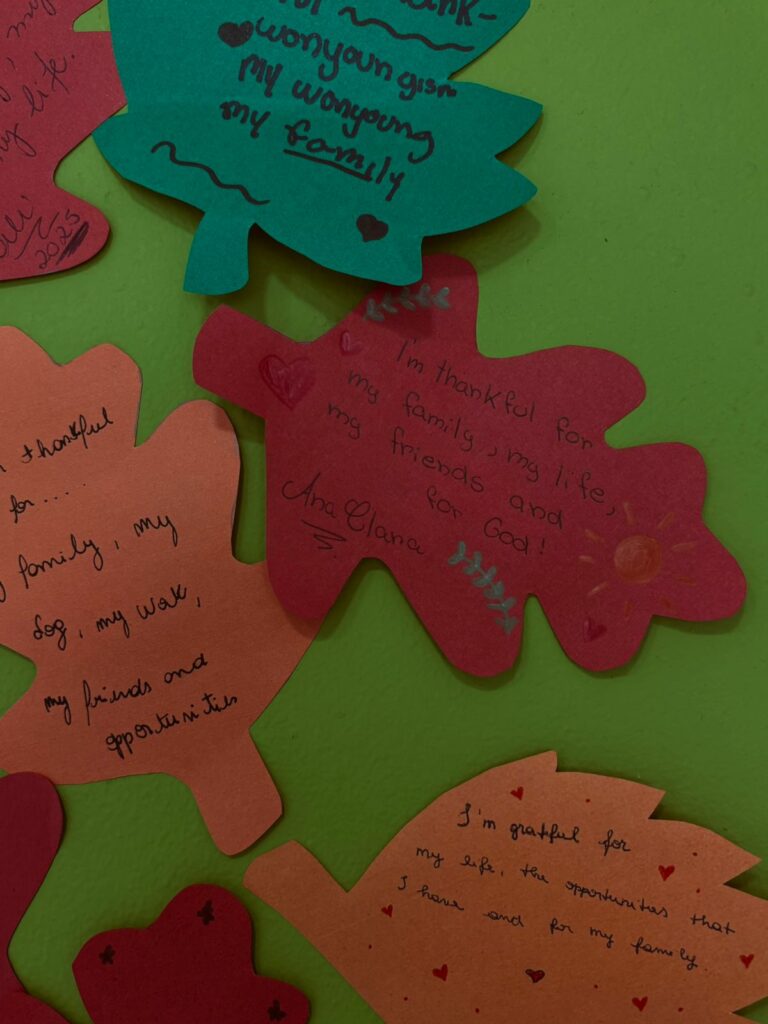 my
my life.
2025
wonyoungism
my wonyoung
my family
I'm thankful for
my family, my life,
my friends and
for God!
Ana Clara
thankful
for.....
family, my
dog, my wok,
my friends and
opportunities
I'm grateful for
my life, the opportunities that
I have and for my family.